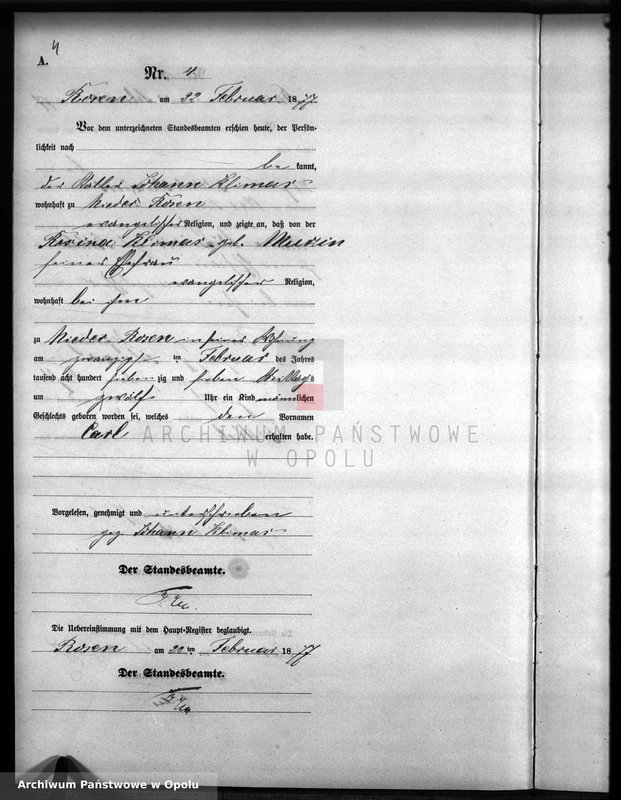 4
A.
Nr. 4.
Rosen am 22. Februar 1877.
Vor dem unterzeichneten Standesbeamten erschien heute, der Persön-
lichkeit nach
be kannt,
der Johann Klimas
wohnhaft zu Nieder Rosen
evangelischer Religion, und zeigte an, daß von der
Rosina Klimas geb.
seiner Ehefrau
evangelischer Religion,
wohnhaft bei ihm
zu Nieder Rosen in seiner Wohnung
am zwanzigsten ten Februar des Jahres
tausend acht hundert sieben zig und sieben Mittags
um zwölf Uhr ein Kind männlichen
Geschlechts geboren worden sei, welches den Vornamen
Carl erhalten habe.
ARCHIWUM PAŃSTWOWE
W OPOLU
Vorgelesen, genehmigt und unterschrieben
gez. Johann Klimas
Der Standesbeamte.
Die Uebereinstimmung mit dem Haupt-Register beglaubigt.
Rosen am 22 ten Februar 1877
Der Standesbeamte.
Archiwum Państwowe w Opolu